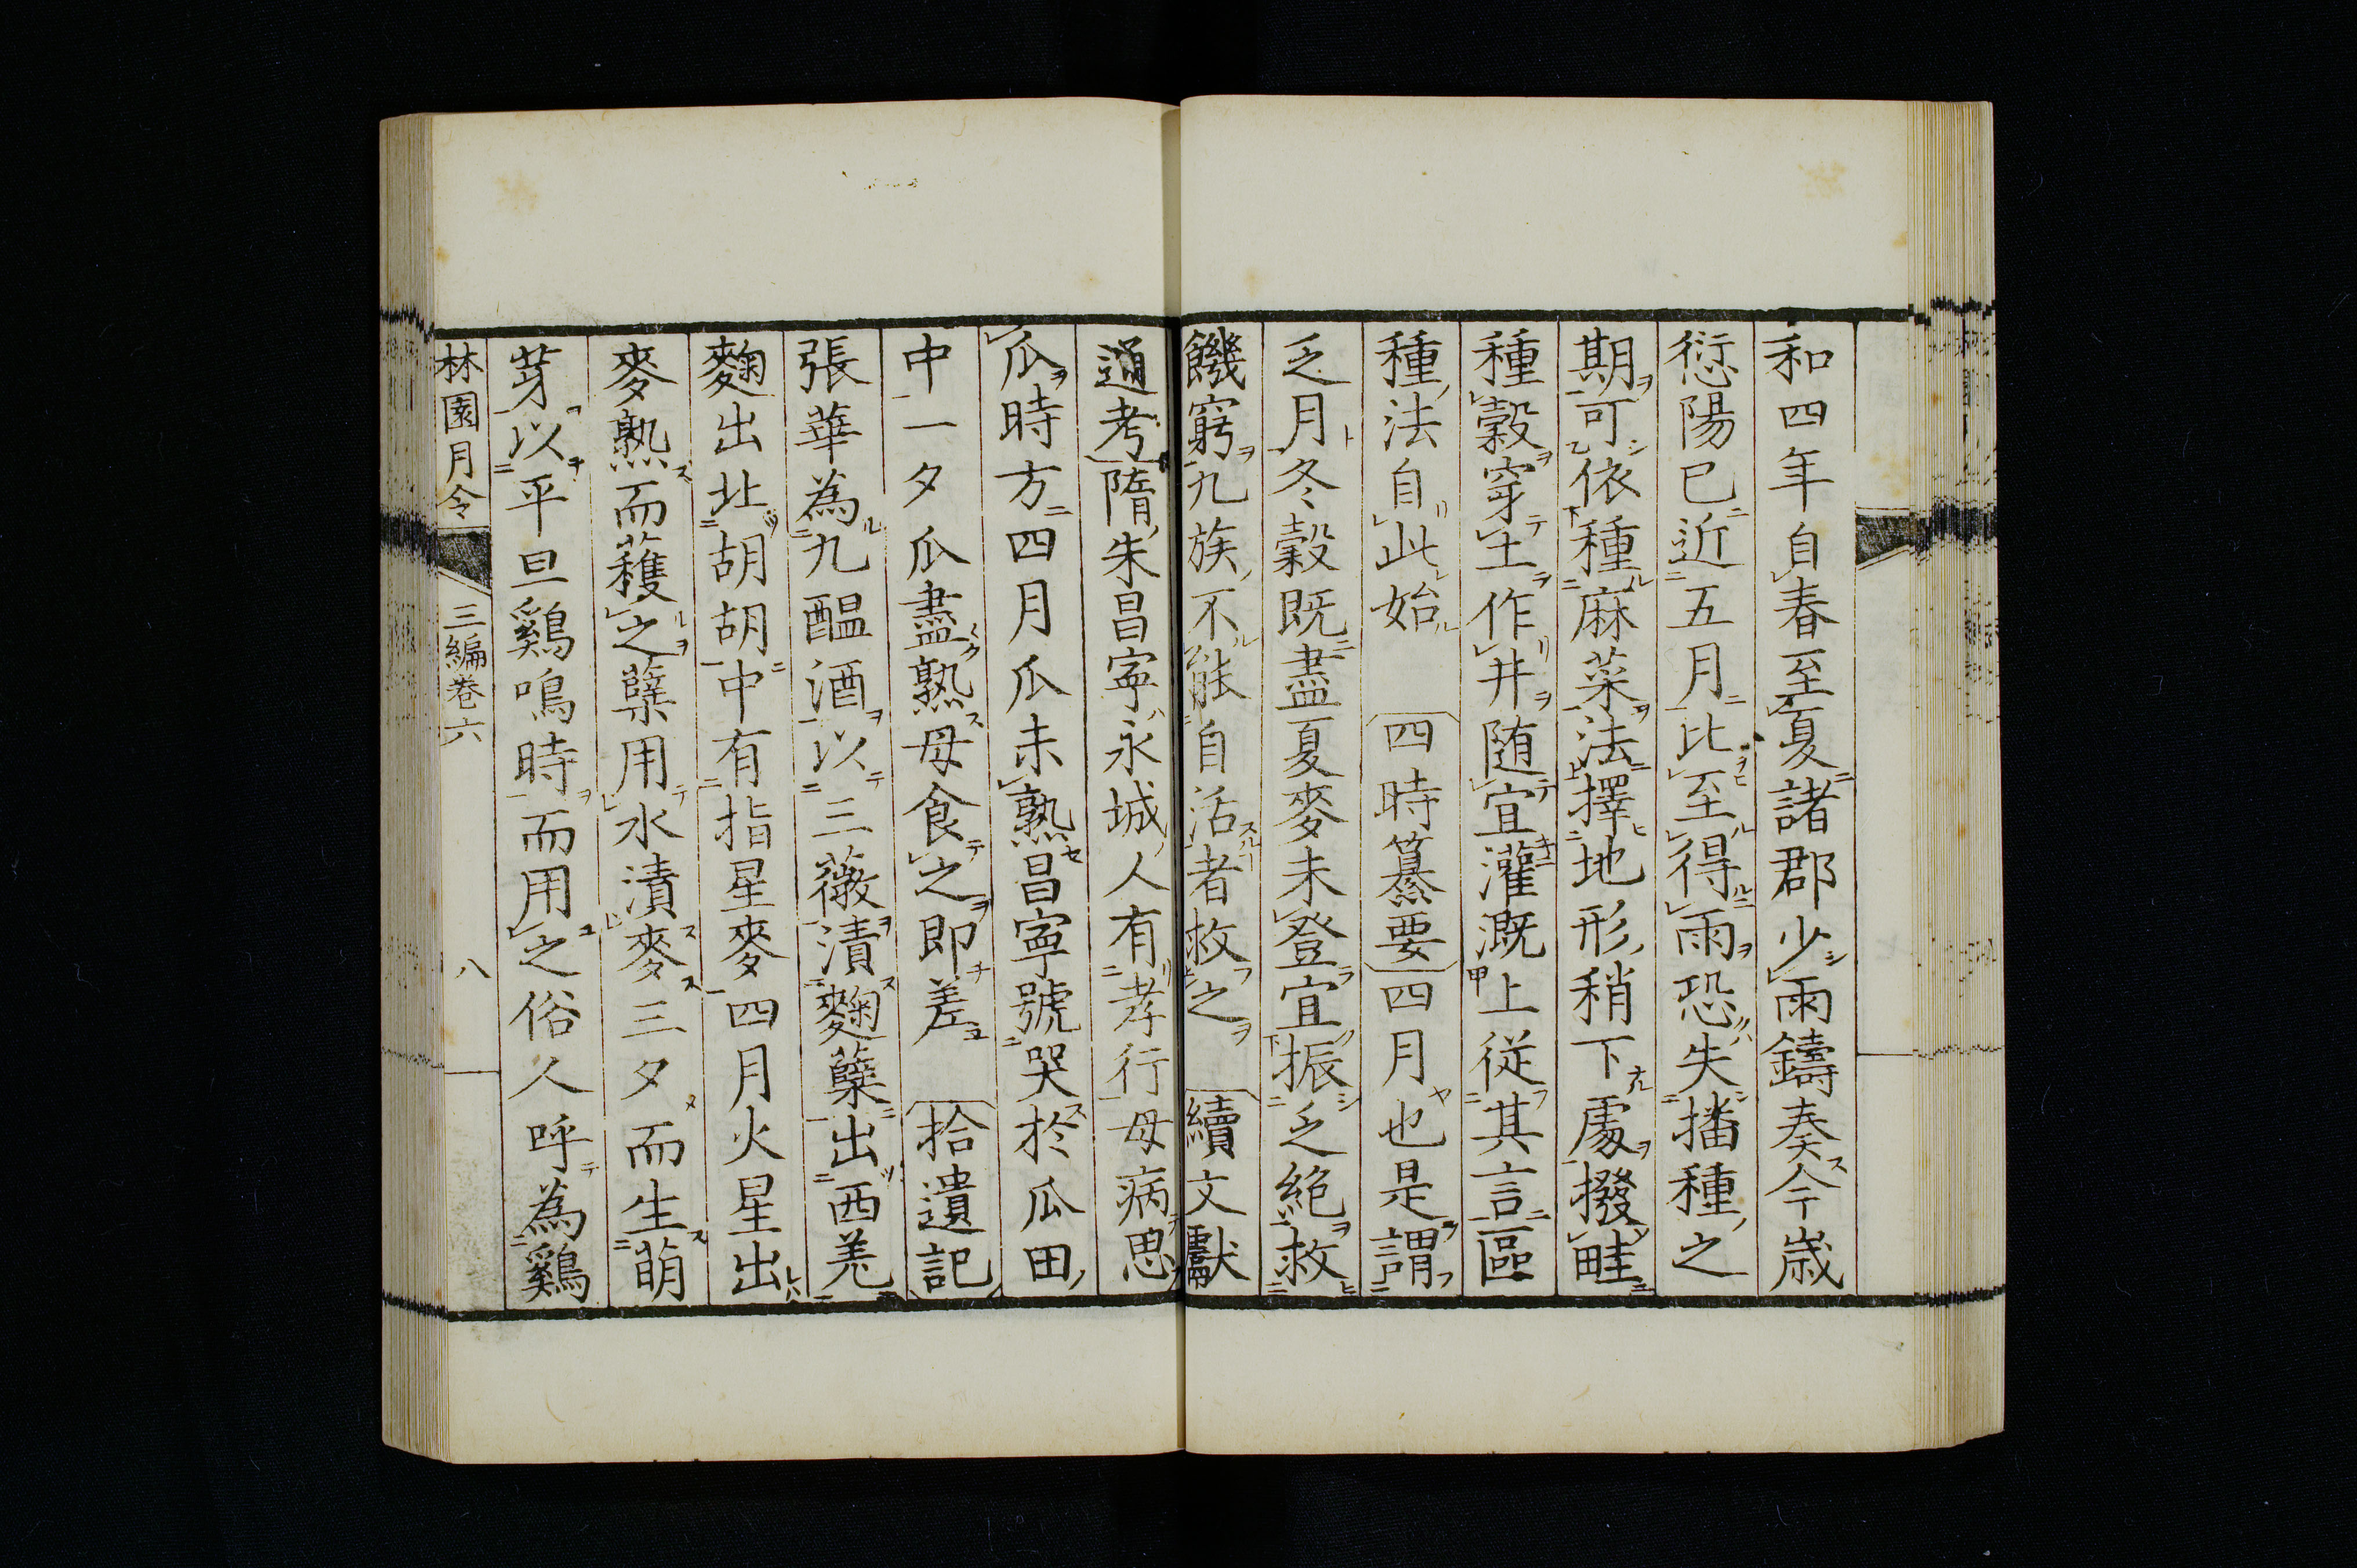 和四年自春至夏諸郡少雨鑄奏今歳
愆陽已近五月比至得雨恐失播種之
期可依種麻菜法擇地形稍下處撥畦
種穀穿土作井随宜灌溉上従其言區
種法自此始　〔四時纂要〕四月也是謂
乏月冬穀既盡夏麥未登宜振乏絶救
饑窮九族不能自活者救之　〔續文獻
通考〕隋朱昌寧永城人有孝行母病思
瓜時方四月瓜未熟昌寧號哭於瓜田
中一夕瓜盡熟母食之即差　〔拾遺記〕
張華為九醞酒以三薇漬麴蘗出西羌
麴出北胡胡中有指星麥四月火星出
麥熟而穫之蘗用水漬麥三夕而生萌
芽以平旦鷄鳴時而用之俗人呼為鷄
林園月令　三編巻六　八